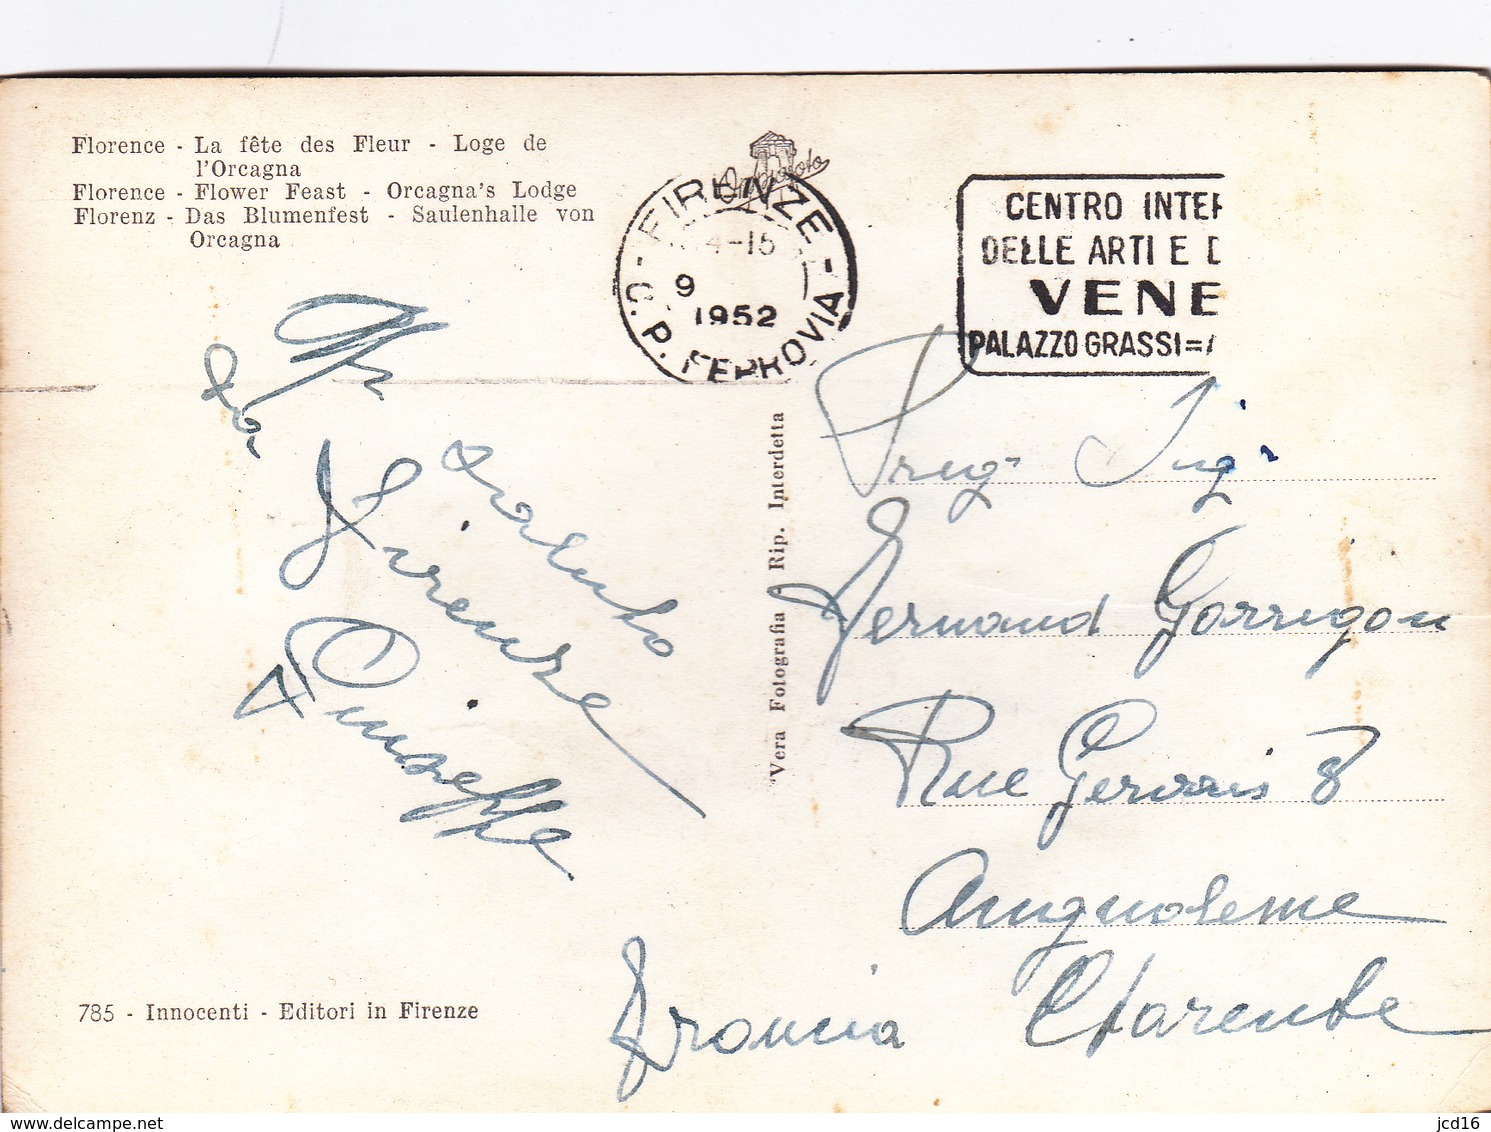 Florence - La fête des Fleur - Loge de
l'Orcagna
Florence - Flower Feast - Orcagna's Lodge
Florenz - Das Blumenfest - Saulenhalle von
Orcagna
FIRENZE
4-15
9
1952
C.P. FERROVIA
CENTRO INTER
DELLE ARTI E D
VENE
PALAZZO GRASSI=
Aff. saluto
da Firenze
Giuseppe
Vera Fotografia Rip. Interdetta
Preg. Ing.
Fernand Garrigou
Rue Gervais 8
Angnoleme
Francia Charente
785 - Innocenti - Editori in Firenze
www.delcampe.net
jcd16